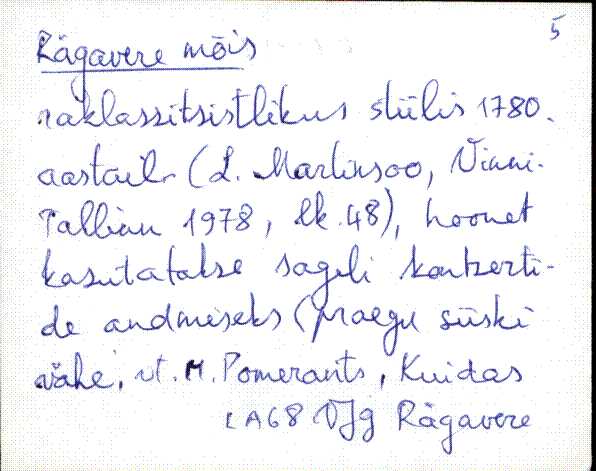 5
Rägavere mõis
raklassitsistlikus stiilis 1780.
aastail (L. Martinsoo, Vinni.
Tallinn 1978, lk. 48), hoonet
kasutatakse sageli kontserti-
de andmiseks (praegu siiski
vähe, vt. M. Pomerants, Kuidas
Rägavere